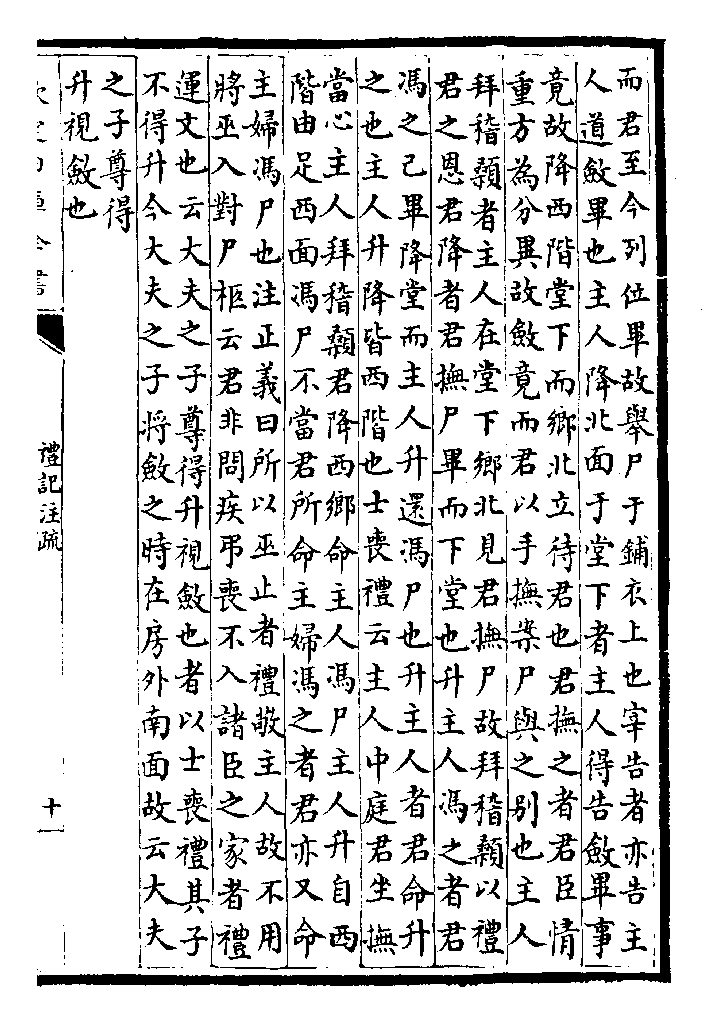 而君至今列位畢故舉尸于鋪衣上也宰告者亦告主
人道斂畢也主人降北面于堂下者主人得告斂畢事
竟故降西階堂下而鄉北立待君也君撫之者君臣情
重方為分異故斂竟而君以手撫案尸與之别也主人
拜稽顙者主人在堂下鄉北見君撫尸故拜稽顙以禮
君之恩君降者君撫尸畢而下堂也升主人馮之者君
馮之已畢降堂而主人升還馮尸也升主人者君命升
之也主人升降皆西階也士喪禮云主人中庭君坐撫
當心主人拜稽顙君降西鄉命主人馮尸主人升自西
階由足西面馮尸不當君所命主婦馮之者君亦又命
主婦馮尸也注正義曰所以巫止者禮敬主人故不用
將巫入對尸柩云君非問疾弔喪不入諸臣之家者禮
運文也云大夫之子尊得升視斂也者以士喪禮其子
不得升今大夫之子將斂之時在房外南面故云大夫
之子尊得
升視斂也
欽定四庫全書
禮記注疏
十一